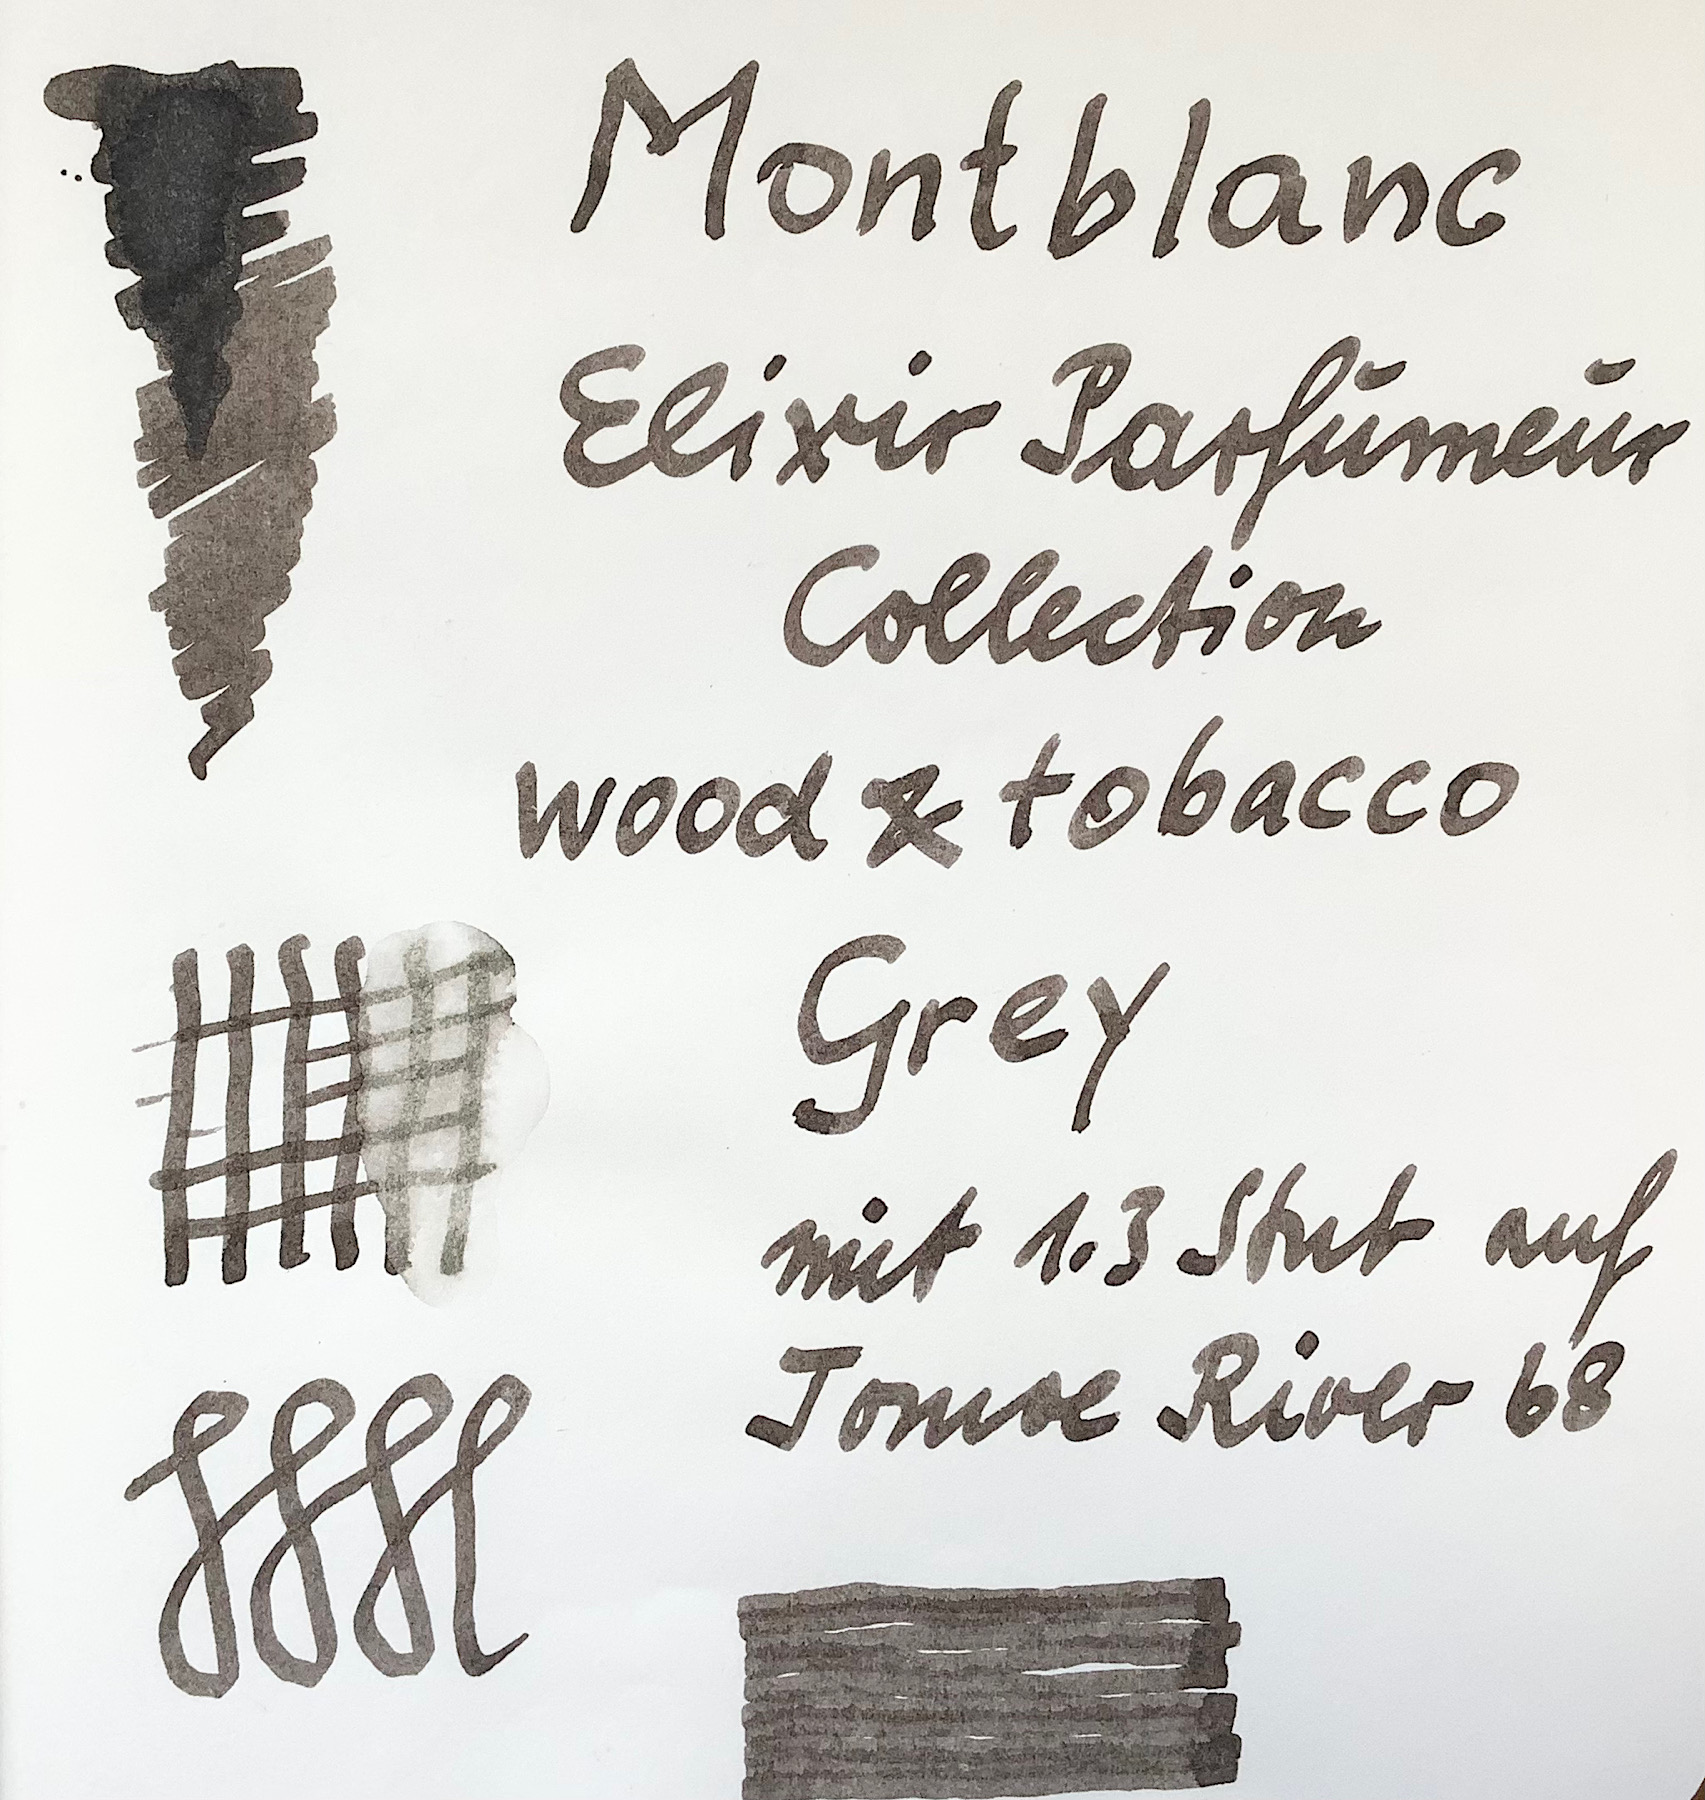 Montblanc
Elixir Parfümeur
Collection
wood & tobacco
Grey
mit 1.3 Stub auf
Tomoe River 68